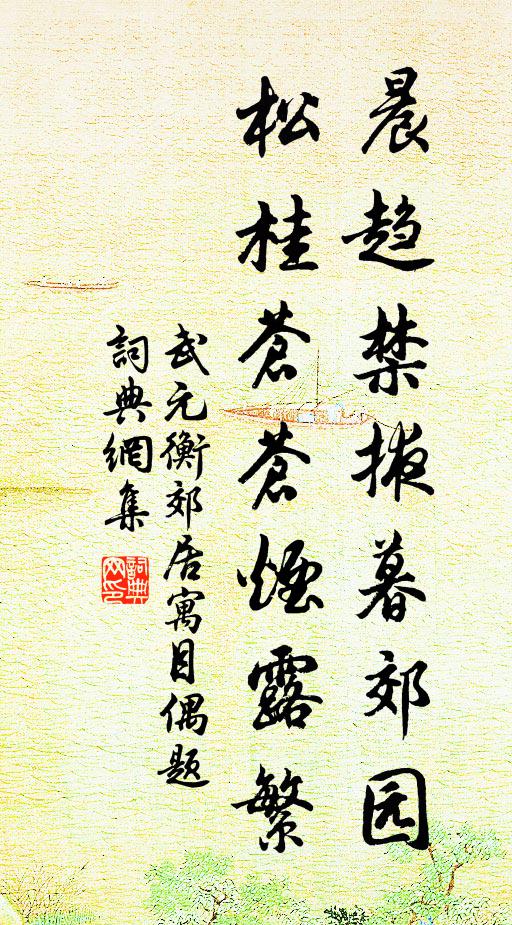 晨趋禁掖暮郊园
松桂苍苍煙露繁
武元衡郊居寓目偶题
詞典網集
詞典网印